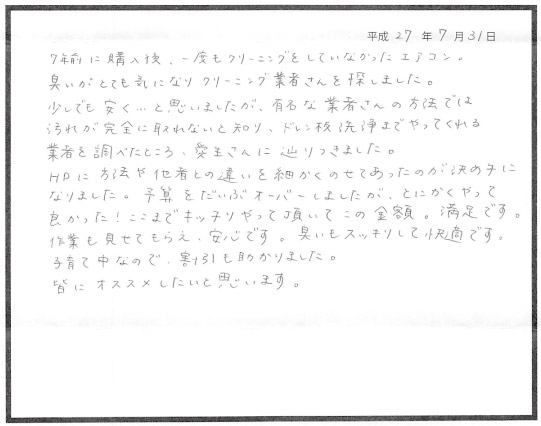 平成27年7月31日
7年前に購入後、一度もクリーニングをしていなかったエアコン。
臭いがとても気になりクリーニング業者さんを探しました。
少しでも安く…と思いましたが、有名な業者さんの方法では
汚れが完全に取れないと知り、ドレン板洗浄までやってくれる
業者を調べたところ、愛生さんに辿りつきました。
HPに方法や他者との違いを細かくのせてあったのが決め手に
なりました。予算をだいぶオーバーしましたが、とにかくやって
良かった!ここまでキッチリやって頂いてこの金額。満足です。
作業も見せてもらえ、安心です。臭いもスッキリして快適です。
子育て中なので、割引も助かりました。
皆にオススメしたいと思います。